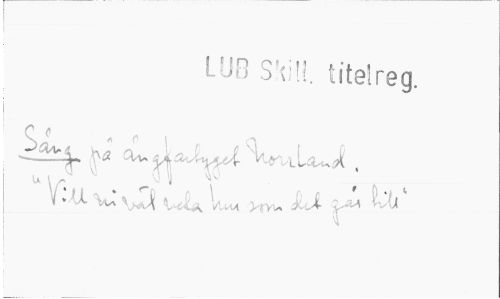 LUB Skill. titelreg.
Sång på ångfartyget Norrland.
"Vill ni väl veta hur som det går till"